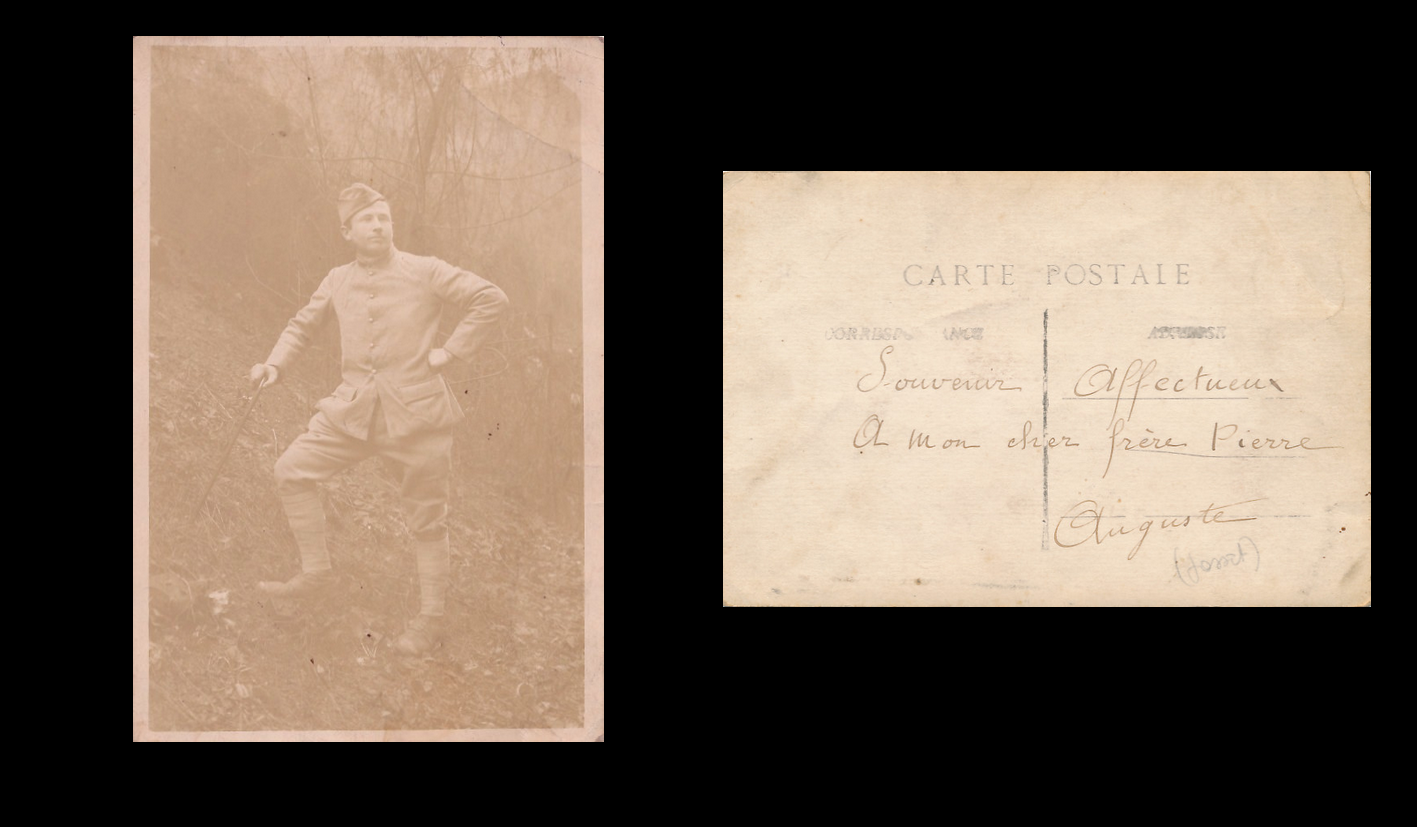 CARTE POSTALE
CORRESPONDANCE ADRESSE
Souvenir Affectueux
A mon cher frère Pierre
Auguste